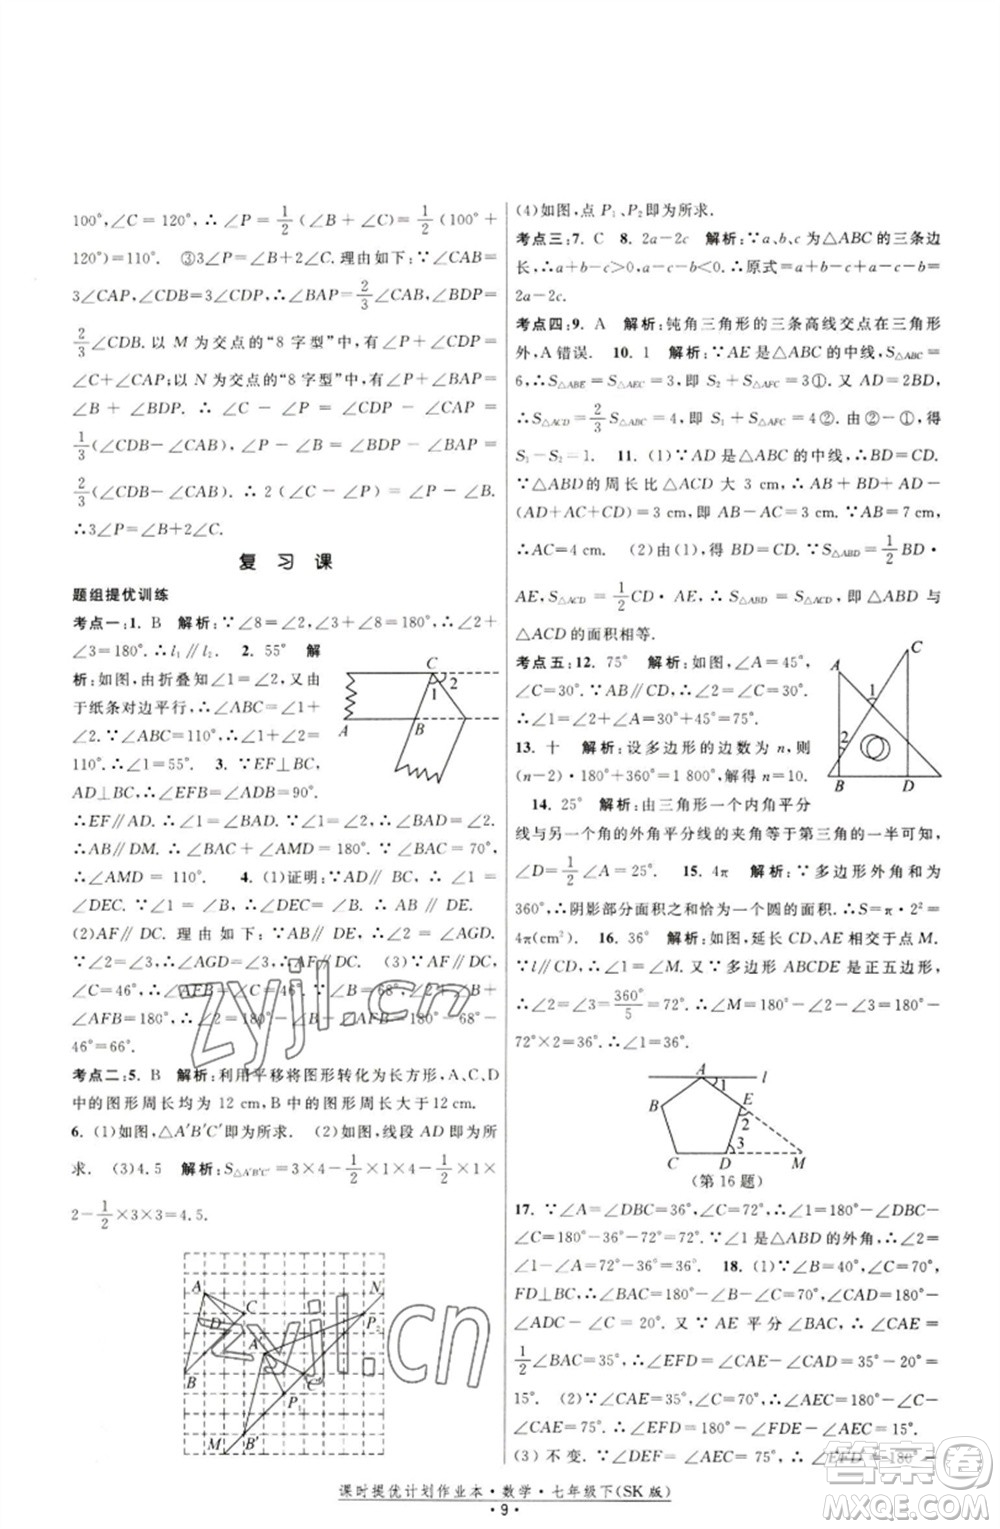 100°,∠C=120°,∴∠P=1/2(∠B+∠C)=1/2(100°+
120°)=110°. ③3∠P=∠B+2∠C.理由如下:∵∠CAB=
3∠CAP,∠CDB=3∠CDP,∴∠BAP=2/3∠CAB,∠BDP=
2/3∠CDB.以M为交点的“8字型”中,有∠P+∠CDP=
∠C+∠CAP;以N为交点的“8字型”中,有∠P+∠BAP=
∠B+∠BDP. ∴∠C-∠P=∠CDP-∠CAP=
1/3(∠CDB-∠CAB),∠P-∠B=∠BDP-∠BAP=
2/3(∠CDB-∠CAB).∴2(∠C-∠P)=∠P-∠B.
∴3∠P=∠B+2∠C.
复习课
题组提优训练
考点一:1. B 解析:∵∠8=∠2,∠3+∠8=180°,∴∠2+
∠3=180°.∴l₁∥l₂. 2. 55° 解
析:如图,由折叠知∠1=∠2,又由
于纸条对边平行,∴∠ABC=∠1+
∠2.∵∠ABC=110°,∴∠1+∠2=
110°.∴∠1=55°. 3. ∵EF⊥BC,
AD⊥BC,∴∠EFB=∠ADB=90°.
∴EF∥AD.∴∠1=∠BAD.∵∠1=∠2,∴∠2=∠BAD.
∴AB∥DM.∴∠BAC+∠AMD=180°.∵∠BAC=70°,
∴∠AMD=110°. 4. (1)证明:∵AD∥BC,∴∠1=
∠DEC.∵∠1=∠B,∴∠B=∠DEC.∴AB∥DE.
(2)AF∥DC.理由如下:由(1)知AB∥DE,∴∠2=∠AGD.
∵∠2=∠D,∴∠AGD=∠D.∴AF∥DC.(3)∵AF∥DC,
∠C=46°,∴∠AFB=∠C=46°.∵∠B=68°,∠2+∠B+
∠AFB=180°,∴∠2=180°-∠B-∠AFB=180°-68°-
46°=66°.
考点二:5. B 解析:利用平移将图形转化为长方形,A、C、D
中的图形周长均为12 cm,B中的图形周长大于12 cm.
6. (1)如图,△A′B′C′即为所求. (2)如图,线段AD即为所
求. (3)4.5 解析:S△A′B′C′=3×4-1/2×1×4-1/2×1×
2-1/2×3×3=4.5.
(4)如图,点P₁、P₂即为所求.
考点三:7. C 8. 2a-2c 解析:∵a、b、c为△ABC的三条边
长,∴a+b-c>0,a-b-c<0.∴原式=a+b-c+a-b-c=
2a-2c.
考点四:9. A 解析:钝角三角形的三条高线交点在三角形
外,A错误. 10. 1 解析:∵AE是△ABC的中线,S△ABC=
6,∴S△ABE=S△ACE=3,即S₂+S△AFC=3①.又∵AD=2BD,
∴S△ACD=2/3S△ABC=4,即S₁+S△AFC=4②.由②-①,得
S₁-S₂=1. 11. (1)∵AD是△ABC的中线,∴BD=CD.
∵△ABD的周长比△ACD大3 cm,∴(AB+AD+BD)-
(AD+AC+CD)=3 cm,即AB-AC=3 cm.∵AB=7 cm,
∴AC=4 cm. (2)由(1),得BD=CD.∵S△ABD=1/2BD·
AE,S△ACD=1/2CD·AE,∴S△ABD=S△ACD,即△ABD与
△ACD的面积相等.
考点五:12. 75° 解析:如图,∵∠A=45°,
∠C=30°,∴∠2=∠C=30°.
∴∠1=∠2+∠A=30°+45°=75°.
13. 十 解析:设多边形的边数为n,则
(n-2)·180°+360°=1 800°,解得n=10.
14. 25° 解析:由三角形一个内角平分
线与另一个角的外角平分线的夹角等于第三角的一半可知,
∠D=1/2∠A=25°. 15. 4π 解析:∵多边形外角和为
360°,∴阴影部分面积之和恰为一个圆的面积.∴S=π·2²=
4π(cm²). 16. 36° 解析:如图,延长CD、AE交于点M.
∵l∥CD,∴∠1=∠M.∵多边形ABCDE是正五边形,
∴∠2=∠3=360°/5=72°.∴∠M=180°-∠2-∠3=180°-
72°×2=36°.∴∠1=36°.
A
B
C
D
E
M
l
1
2
3
(第16题)
17. ∵∠A=∠C=36°,∠DBC=72°,∴∠1=180°-∠DBC-
∠C=72°.∵∠1是△ABD的外角,∴∠ABD=∠1-
∠A=36°. 18. (1)∵∠B=40°,∠C=70°,
FD⊥BC,∴∠BAC=180°-∠B-∠C=70°,
∠FDE=90°.又∵AE平分∠BAC,∴∠BAE=∠CAE=
1/2∠BAC=35°.∴∠EFD=∠CAE-20°=35°-20°=
15°. (2)∵∠CAE=35°,∴∠AEC=180°-∠C-
∠CAE=75°.∴∠EFD=180°-∠FDE-∠AEC=15°.
(3)不变.∵∠DEF=∠AEC=75°,∴∠EFD=180°-
课时提优计划作业本·数学·七年级下(SK版)
· 9 ·
zyjl.cn
zyjl.cn